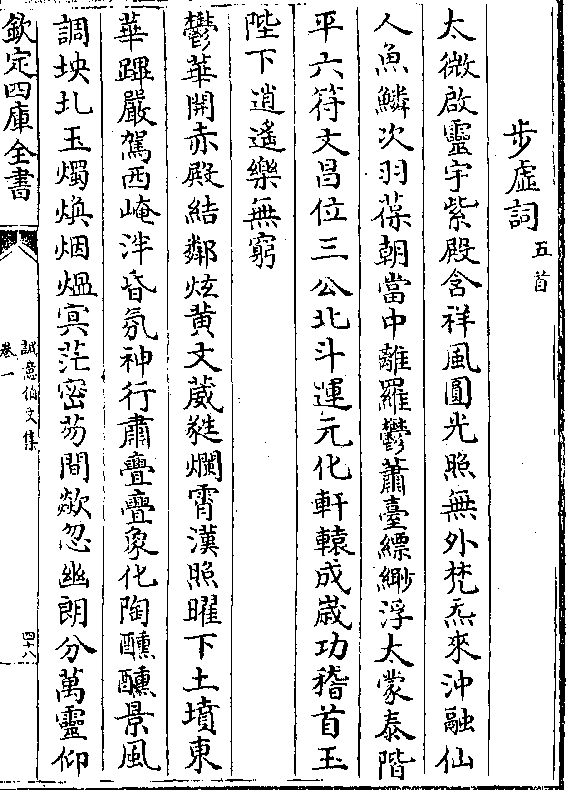 步虛詞五首
太微啟靈宇紫殿含祥風圓光照無外梵炁來沖融仙
人魚鱗次羽葆朝當中離羅鬱蕭臺縹緲浮太蒙泰階
平六符文昌位三公北斗運元化軒轅成歲功稽首玉
陛下逍遙樂無窮
鬱華開赤殿結鄰炫黃文葳蕤爛霄漢照曜下土墳東
華蹕嚴駕西崦泮昏氛神行肅亹亹象化陶醺醺景風
調坱圠玉燭煥烟熅㝠茫密芴間歘忽幽朗分萬靈仰
欽定四庫全書
誠意伯文集
卷一
四十八